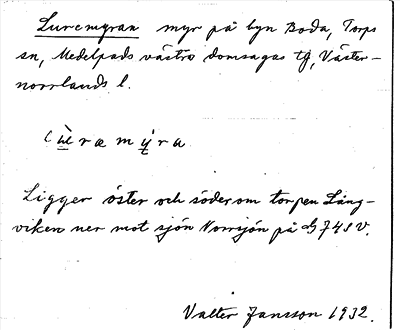 Luremyran myr på byn Boda, Torps
sn, Medelpads västra domsagas tg, Väster-
norrlands l.
lùramýra
Ligger öster och söder om torpen Lång-
viken ner mot sjön Norrsjön på
Valter Jansson 1932.